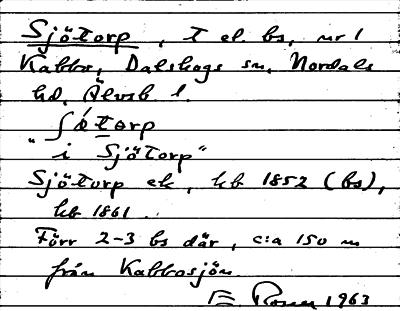 Sjötorp, T el. bs, nr 1
Kabbo, Dalskogs sn, Nordals
hd, Älvsb. l.
ʃø̀torp
"i Sjötorp"
Sjötorp ek, hb 1852 (bs),
hb 1861.
Förr 2-3 bs där, c:a 150 m
från Kabbosjön.
1963